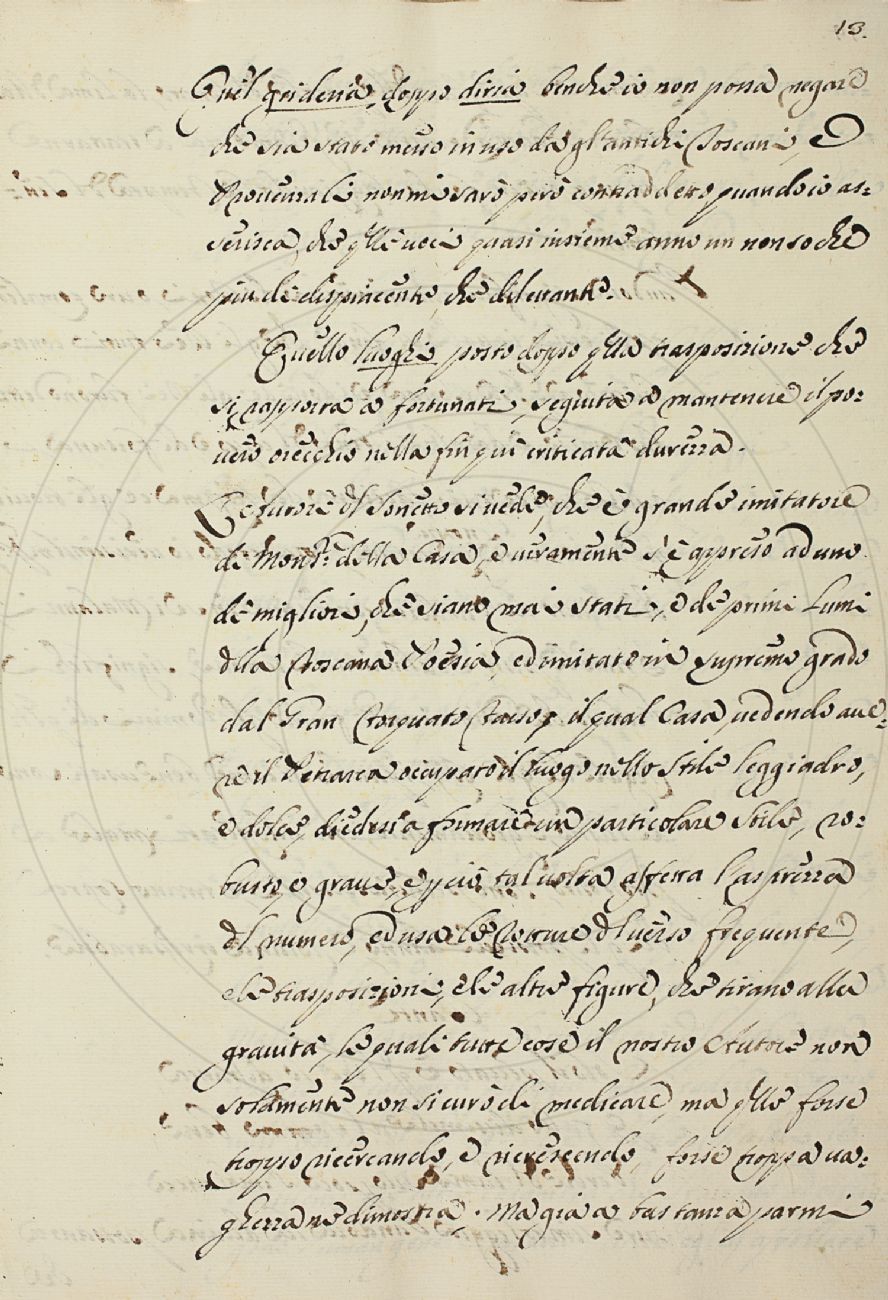 13.
Quel griderià, doppo diria benche io non possa negare
che sia stato messo in uso da gl'antichi Toscani, e
Provenzali non mi sarà però contraddetto quando io as=
serisca, che q̃lle voci quasi insieme anno un non so che
più di dispiacente, che dilettante.
Quello luoghi posto doppo q̃lla trasposizione che
si rapporta a fortunati, seguita a mantenere il po=
vero orecchio nella fin qui criticata durezza.
L'Autore d̃l Sonetto si vede, che è grande imitatore
di Mons.r della Casa, e veramente s'è appreso ad uno
de migliori, che siano mai stati, e de primi Lumi
d̃lla Toscana Poesia, ed imitato in supremo grado
dal Gran Torquato Tasso, il qual Casa, vedendo ave=
re il Petrarca occupato il luogo nello Stile leggiadro,
e dolce, diedesi a formare un particolare Stile, ro=
busto, e grave, e p̃ciò tal volta affetta l'asprezza
d̃l numero, ed usa le rotture d̃l verso frequente,
e le trasposizioni, e le altre figure, che tirano alla
gravità, le quali tutte cose il nostro Autore non
solamente non si curò di medicare, ma q̃lle forse
troppo ricercando, e ricrescendo, forse troppa va=
ghezza ne dimostra. Ma già a bastanza parmi